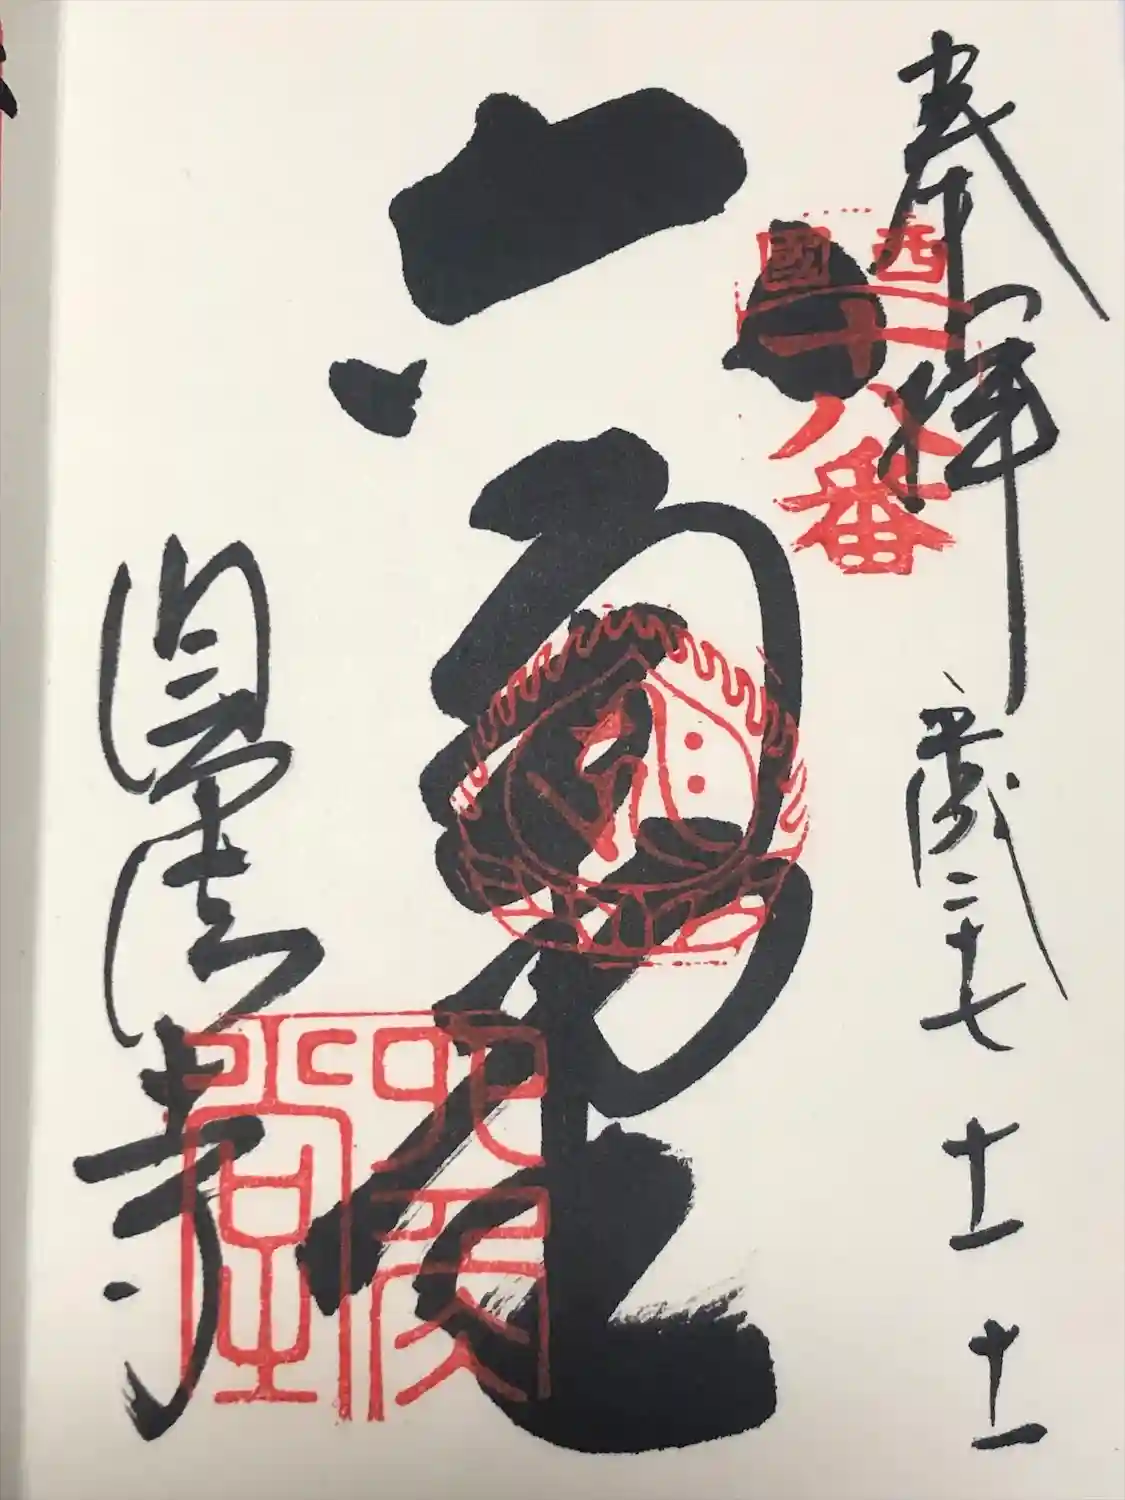 奉拝
西國
十八番
平成二十七 十一 十一
六角堂
六角堂
頂法寺